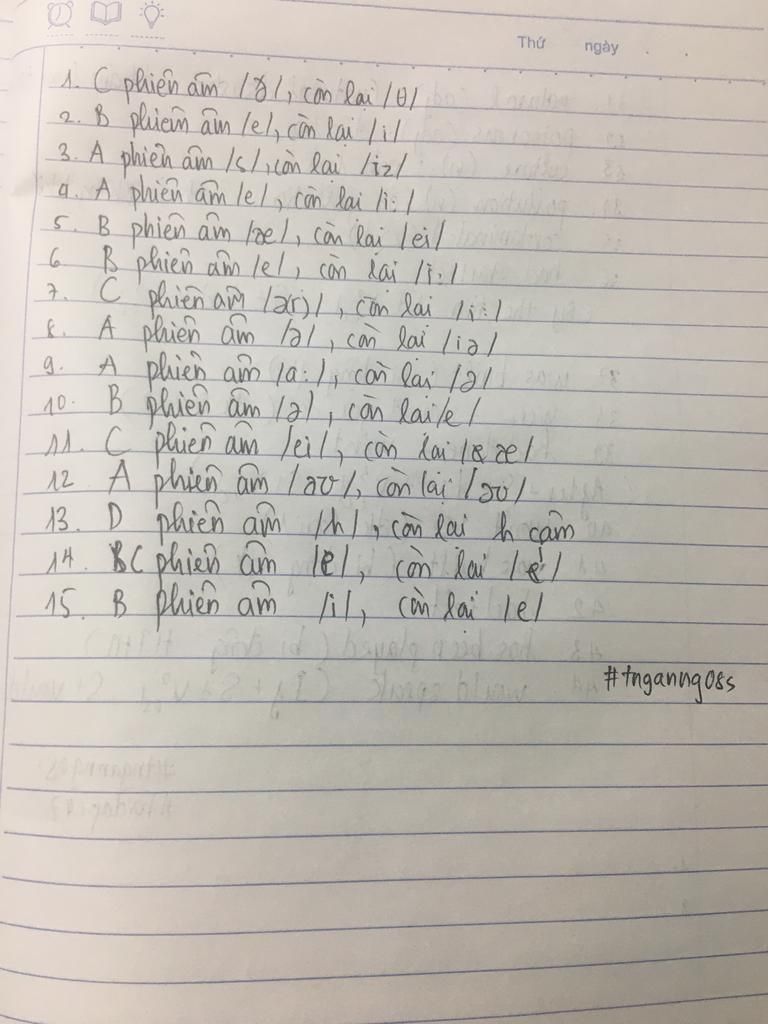 Thứ ngày
1. C phiên âm /ð/, còn lại /θ/
2. B phiêm âm /e/, còn lại /i/
3. A phiên âm /s/, còn lại /iz/
4. A phiên âm /e/, còn lại /i:/
5. B phiên âm /æ/, còn lại /ei/
6 B phiên âm /e/, còn lại /i:/
7. C phiên âm /ə(r)/, còn lại /i:/
8. A phiên âm /ə/, còn lại /iə/
9. A phiên âm /a:/, còn lại /ə/
10. B phiên âm /ə/, còn lại /e/
11. C phiên âm /ei/, còn lại /æ/
12 A phiên âm /aʊ/, còn lại /əʊ/
13. D phiên âm /h/, còn lại h câm
14. C phiên âm /e/, còn lại
15. B phiên âm /i/, còn lại /e/
#tnganng08s